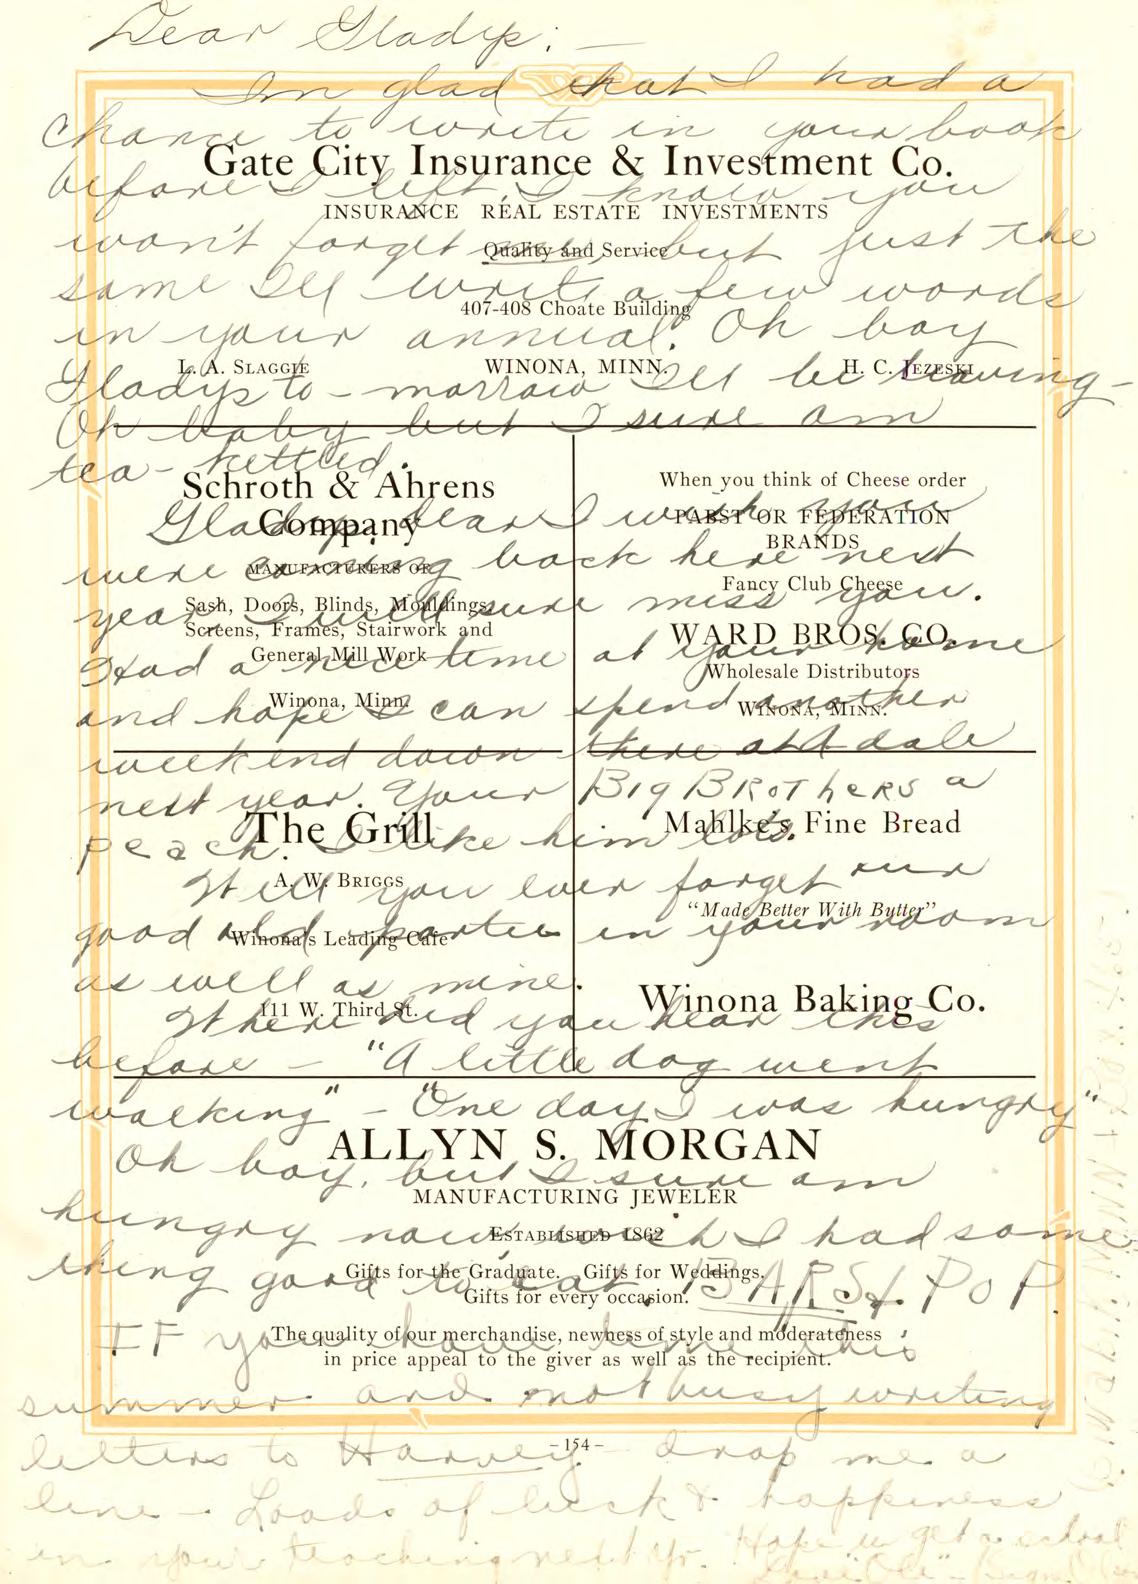 Dear Gladys: —
I'm glad that I had a
chance to write in your book
Gate City Insurance & Investment Co.
before I left. I know you
INSURANCE REAL ESTATE INVESTMENTS
won't forget me but just the
Quality and Service
same I'll write a few words
407-408 Choate Building
in your annual. Oh boy
L. A. SLAGGIE WINONA, MINN. H. C. JEZESKI
Gladys to-morrow I'll be leaving-
Oh baby but I sure am
tea-kettled.
Schroth & Ahrens
Company
MANUFACTURERS OF
Sash, Doors, Blinds, Mouldings,
Screens, Frames, Stairwork and
General Mill Work
Winona, Minn.
When you think of Cheese order
PABST OR FEDERATION
BRANDS
Fancy Club Cheese
WARD BROS. CO.
Wholesale Distributors
WINONA, MINN.
Gladys dear I wish you
were coming back here next
year I will sure miss you.
Had a nice time at your home
and hope I can spend another
weekend down there at A dale
next year. Your BIG BROTHERS a
peach. I like him lots.
The Grill
A. W. BRIGGS
Winona's Leading Cafe
111 W. Third St.
Mahlke's Fine Bread
"Made Better With Butter"
Winona Baking Co.
Will you ever forget our
good old parties in your room
as well as mine.
Where did you hear this
before — "A little dog went
walking" — "One day I was hungry"
ALLYN S. MORGAN
Oh boy, but I sure am
MANUFACTURING JEWELER
hungry now, wish I had some
ESTABLISHED 1862
thing good to eat. BARS & POP.
Gifts for the Graduate. Gifts for Weddings.
Gifts for every occasion.
IF you have time this
The quality of our merchandise, newness of style and moderateness
in price appeal to the giver as well as the recipient.
summer and not busy writing
- 154 -
letters to Harvey — drop me a
line — Loads of luck & happiness
in your teaching next yr. Hope u get a school
Love "Ole"